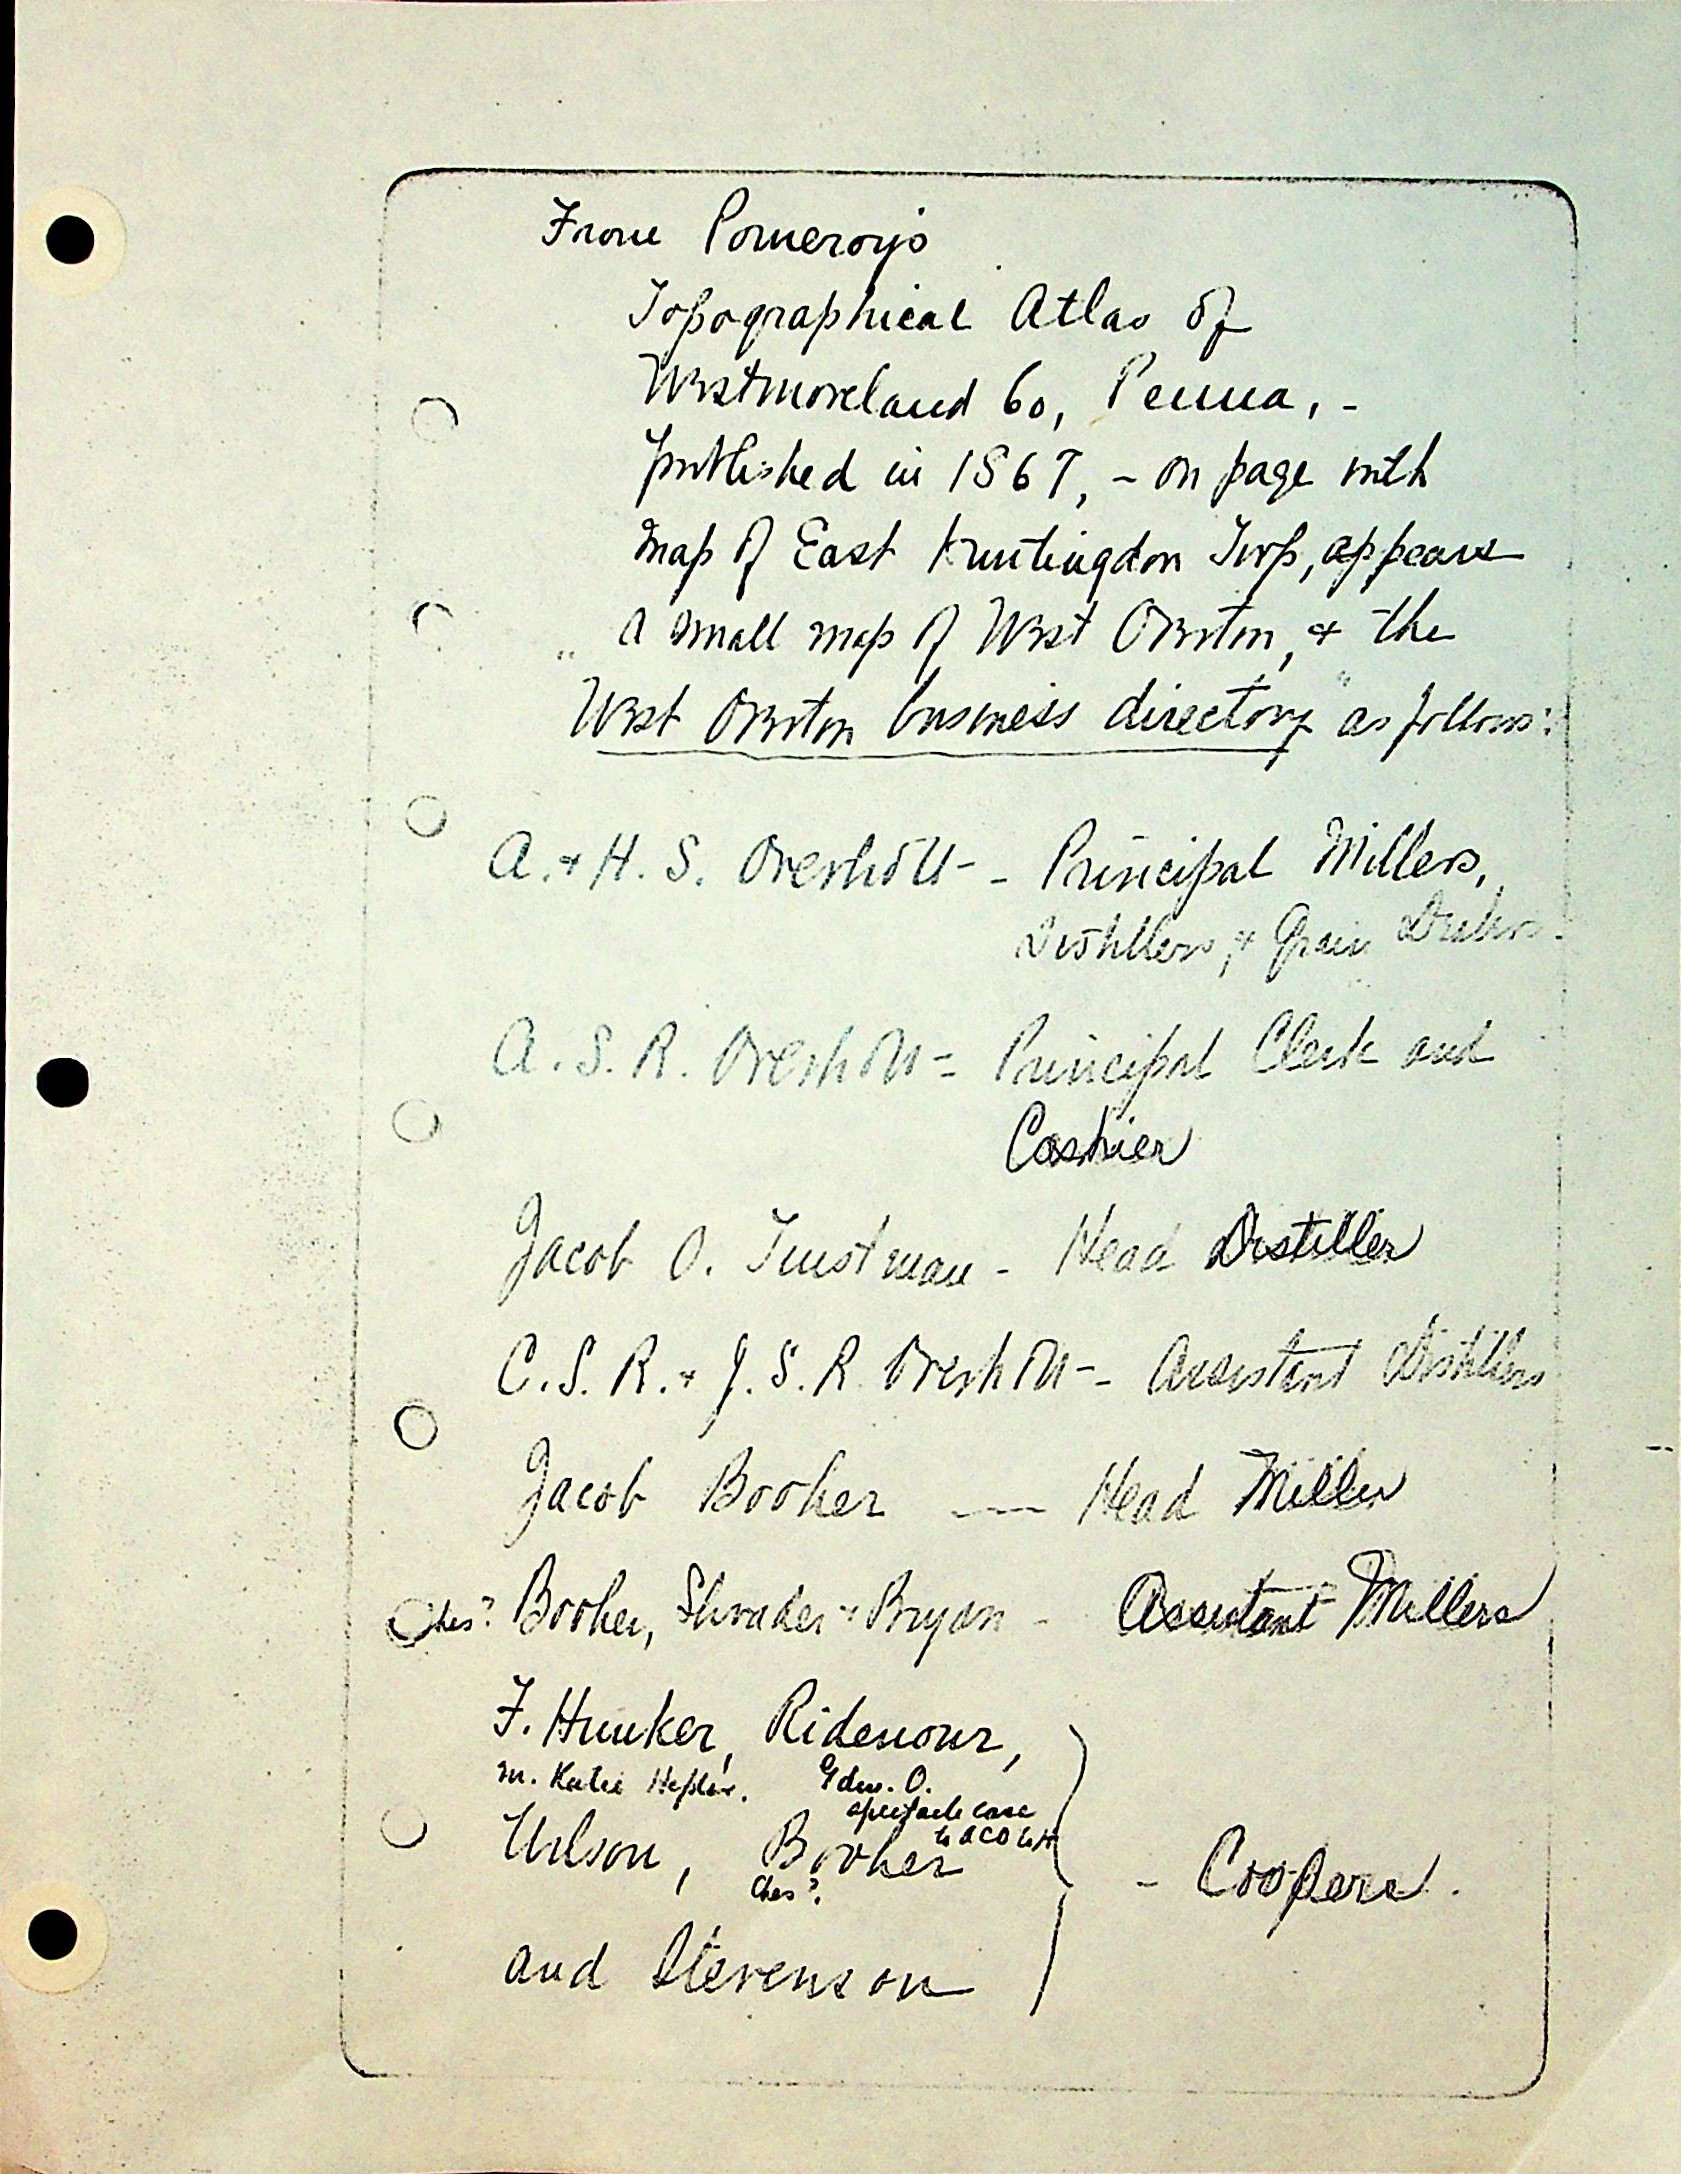 From Pomeroy's
Topographical Atlas of
Westmoreland Co, Penna, -
published in 1867, - on page with
map of East Huntingdon Twp, appears
a small map of West Overton, & the
"West Overton business directory" as follows:
A. & H. S. Overholt - - Principal Millers,
Distillers, & Grain Dealers.
A. S. R. Overholt - Principal Clerk and
Cashier
Jacob O. Tinstman - Head Distiller
C. S. R. & J. S. R. Overholt - - Assistant Distillers
Jacob Booher — Head Miller
Ches? Booher, Shrader & Bryan - Assistant Millers
F. Hunker, Ridenour,
m. Katie Hepler. Edw. O.
spectacle case
to ACO
Wilson, Booher
Ches?
- Coopers.
and Stevenson